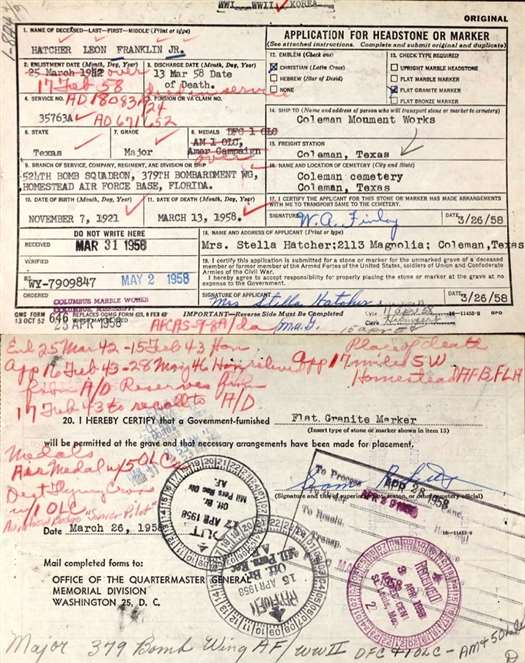 WWI WWII KOREA
ORIGINAL
1. NAME OF DECEASED—LAST—FIRST—MIDDLE (Print or type)
HATCHER LEON FRANKLIN JR.
APPLICATION FOR HEADSTONE OR MARKER
(See attached instructions. Complete and submit original and duplicate)
2. ENLISTMENT DATE (Month, Day, Year)
25 March 1942 over
17 Feb 58
3. DISCHARGE DATE (Month, Day, Year)
13 Mar 58 Date
of Death.
died in serv
12. EMBLEM (Check one)
CHRISTIAN (Latin Cross)
HEBREW (Star of David)
NONE
13. CHECK TYPE REQUIRED
UPRIGHT MARBLE HEADSTONE
FLAT MARBLE MARKER
FLAT GRANITE MARKER
FLAT BRONZE MARKER
4. SERVICE NO.
35763A
5. PENSION OR VA CLAIM NO.
AO 671652
14. SHIP TO (Name and address of person who will transport stone or marker to cemetery)
Coleman Monment Works
6. STATE
Texas
7. GRADE
Major
8. MEDALS DFC 1 OLC
AM 1 OLC,
Amar Campaign
over
15. FREIGHT STATION
Coleman, Texas
9. BRANCH OF SERVICE, COMPANY, REGIMENT, AND DIVISION OR SHIP
524TH BOMB SQUADRON, 379TH BOMBARDMENT WG,
HOMESTEAD AIR FORCE BASE, FLORIDA.
16. NAME AND LOCATION OF CEMETERY (City and State)
Coleman cemetery
Coleman, Texas
10. DATE OF BIRTH (Month, Day, Year)
NOVEMBER 7, 1921
11. DATE OF DEATH (Month, Day, Year)
MARCH 13, 1958.
17. I CERTIFY THE APPLICANT FOR THIS STONE OR MARKER HAS MADE ARRANGEMENTS
WITH ME TO TRANSPORT SAME TO THE CEMETERY.
SIGNATURE
W.A. Finley
DATE
3/26/58
DO NOT WRITE HERE
RECEIVED
MAR 31 1958
18. NAME AND ADDRESS OF APPLICANT (Print or type)
Mrs. Stella Hatcher:2113 Magnolia; Coleman,Texas
VERIFIED
19. I certify this application is submitted for a stone or marker for the unmarked grave of a deceased
member or former member of the Armed Forces of the United States, soldiers of Union and Confederate
Armies of the Civil War.
I hereby agree to accept responsibility for properly placing the stone or marker at the grave at no
expense to the Government.
B/L
WY-7909847
MAY 2 1958
ORDERED
COLUMBUS MARBLE WORKS
COLUMBUS, MISSISSIPPI
23 APR 1958
SIGNATURE
Mrs Stella Hatcher
DATE
3/26/58
QMC FORM 646
13 OCT 52
IMPORTANT—Reverse Side Must Be Completed
End 25 Mar 42 - 15 Feb 43 Hon
App 16 Feb 43 - 28 May 46 Hon
17 Feb 43 to
A/D
Place of death
17 miles SW
Homestead AFB, FLA
20. I HEREBY CERTIFY that a Government-furnished
Flat Granite Marker
(Insert type of stone or marker shown in item 13)
will be permitted at the grave and that necessary arrangements have been made for placement.
Medals
Air Medal w/5 OLC
Dist Flying Cross
w/1 OLC
"Senior Pilot"
To Process
APR 28 1958
Date March 26, 1958
Mail completed forms to:
OFFICE OF THE QUARTERMASTER GENERAL
MEMORIAL DIVISION
WASHINGTON 25, D. C.
RECEIVED
Major 379 Bomb Wing AF/ WWII DFC & 1 OLC - AM & 5 OLC